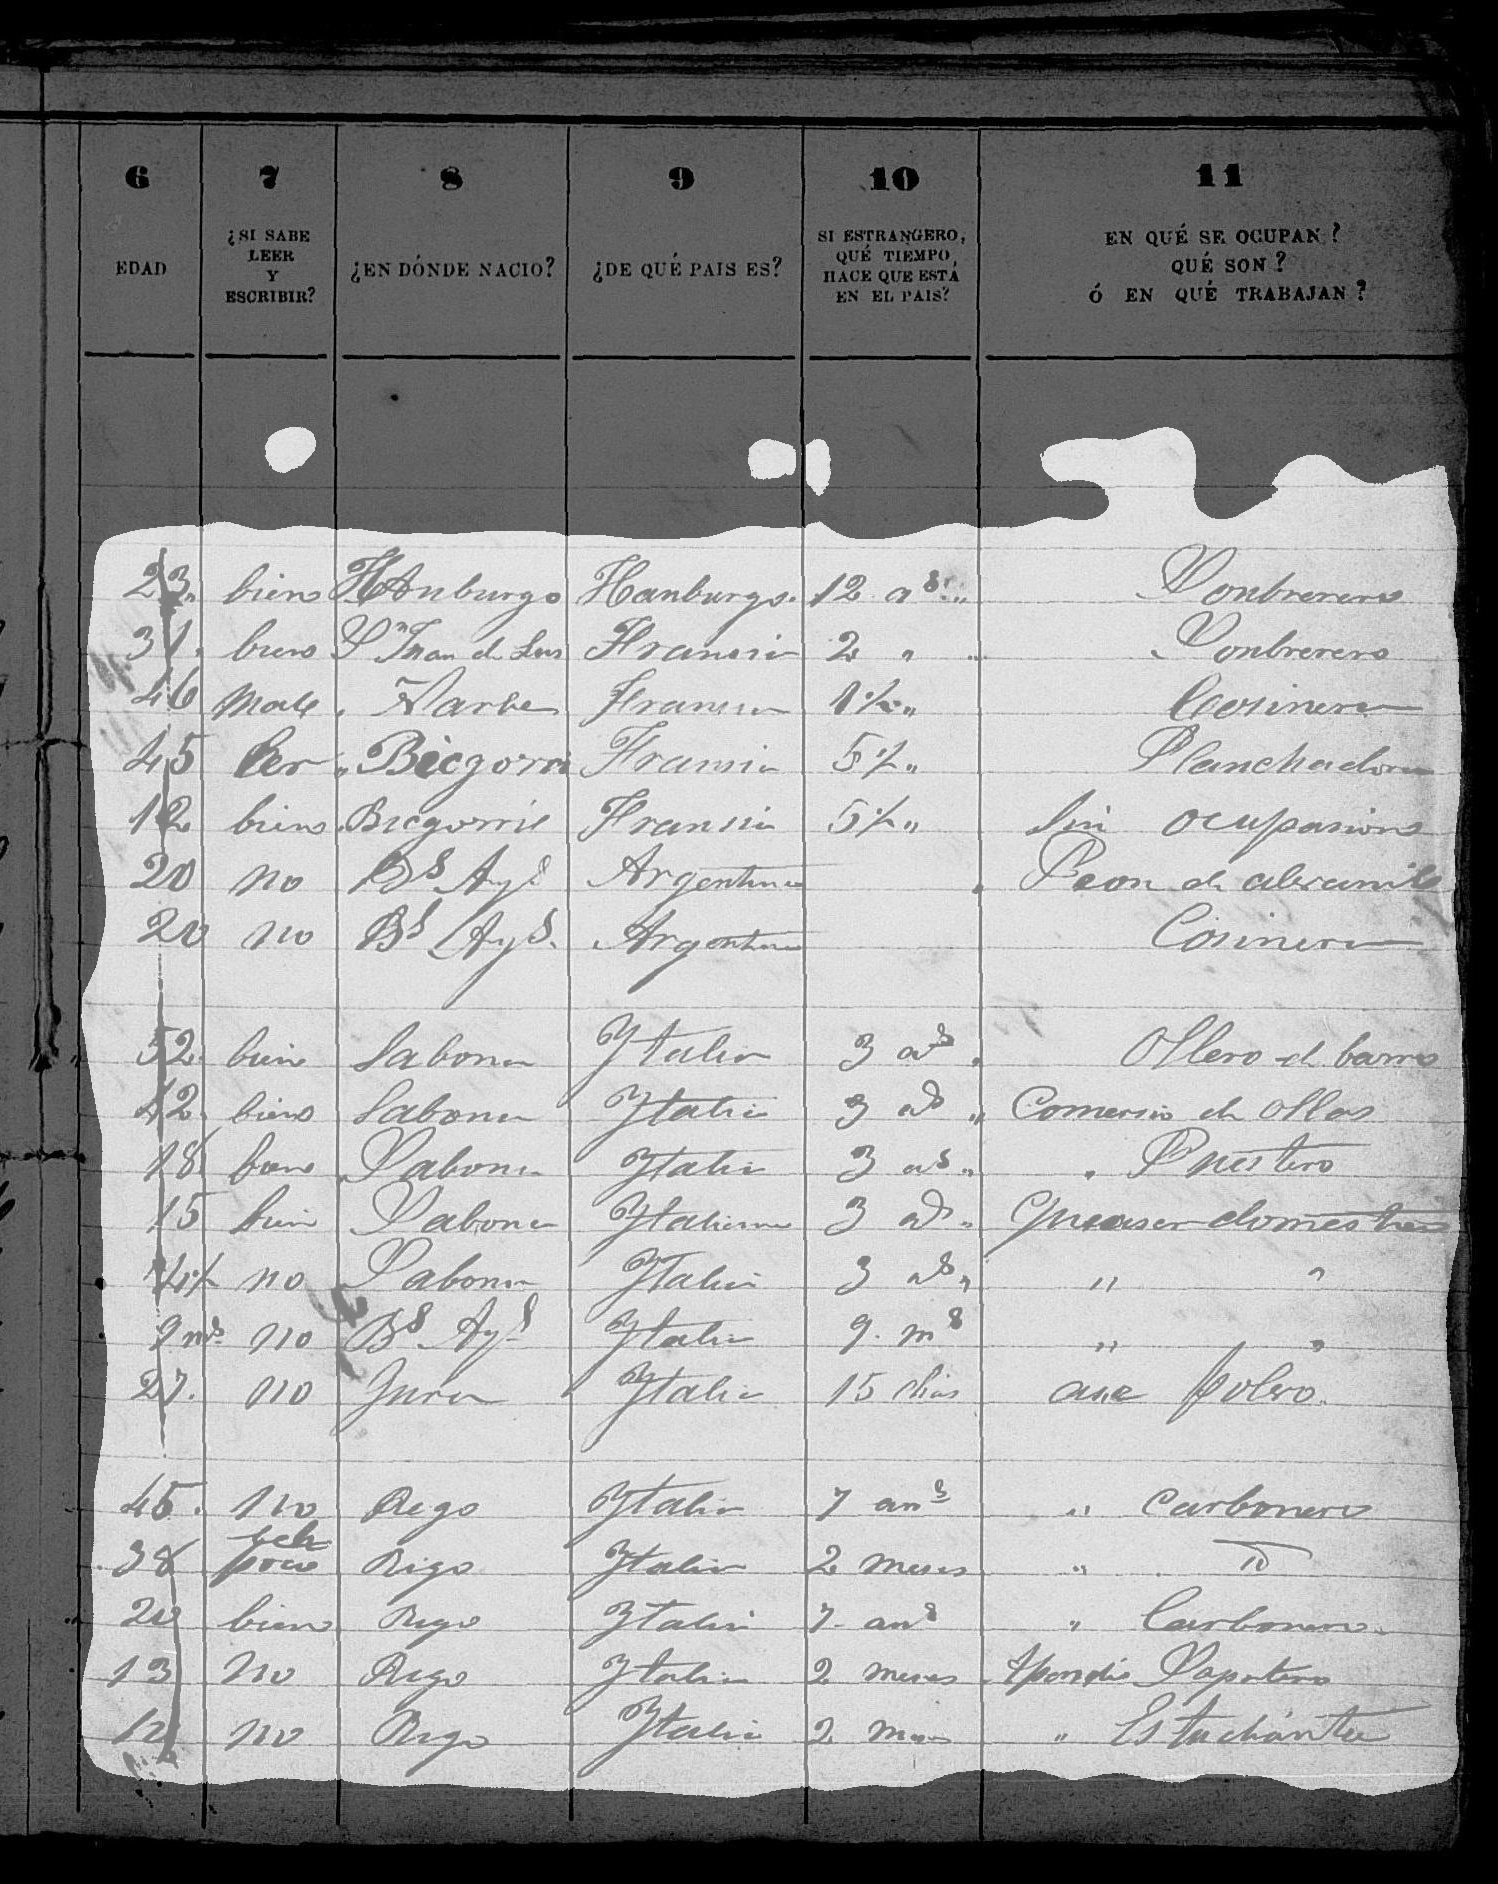 6 7 8 9 10 11
EDAD ¿SI SABE LEER Y ESCRIBIR? ¿EN DÓNDE NACIO? ¿DE QUÉ PAIS ES? SI ESTRANGERO, QUÉ TIEMPO, HACE QUE ESTÁ EN EL PAIS? EN QUÉ SE OCUPAN? QUÉ SON? Ó EN QUÉ TRABAJAN?
23 bien Hanburgo Hanburgo. 12 as „ Sonbrerero
31. bien Sn Juan de Lus Fransia 2 „ Sonbrerero
46 Fransia Cosinera
45 Ler Fransia 5½ „ Planchadora
12 bien Fransia 5½ „ Sin ocupasion
20 no Bs Ays Argentina Peon de
20 no Bs Ays. Argentina Cosinera
52. bien Sabona Ytalia 3 as „ Ollero de barro
42. bien Sabona Ytalia 3 as „ Comersio de ollas
18 bien Sabona Ytalia 3 as „ Puestero
15 bien Sabona Ytaliana 3 as „
no Sabona Ytalia 3 as „ „ „
9 ms no Bs Ays Ytalia 9. ms „ „
27. no Ytalia 15 dias
45. no Rego Ytalia 7 ans „ Carbonero
38 poco Rigo Ytalia 2 meses „ Id
20 bien Rigo Ytalia 7. ans „ Carbonero.
13 no Rigo Ytalia 2 meses Sapatero
12 no Rigo Ytalia 2 „ Estudiante